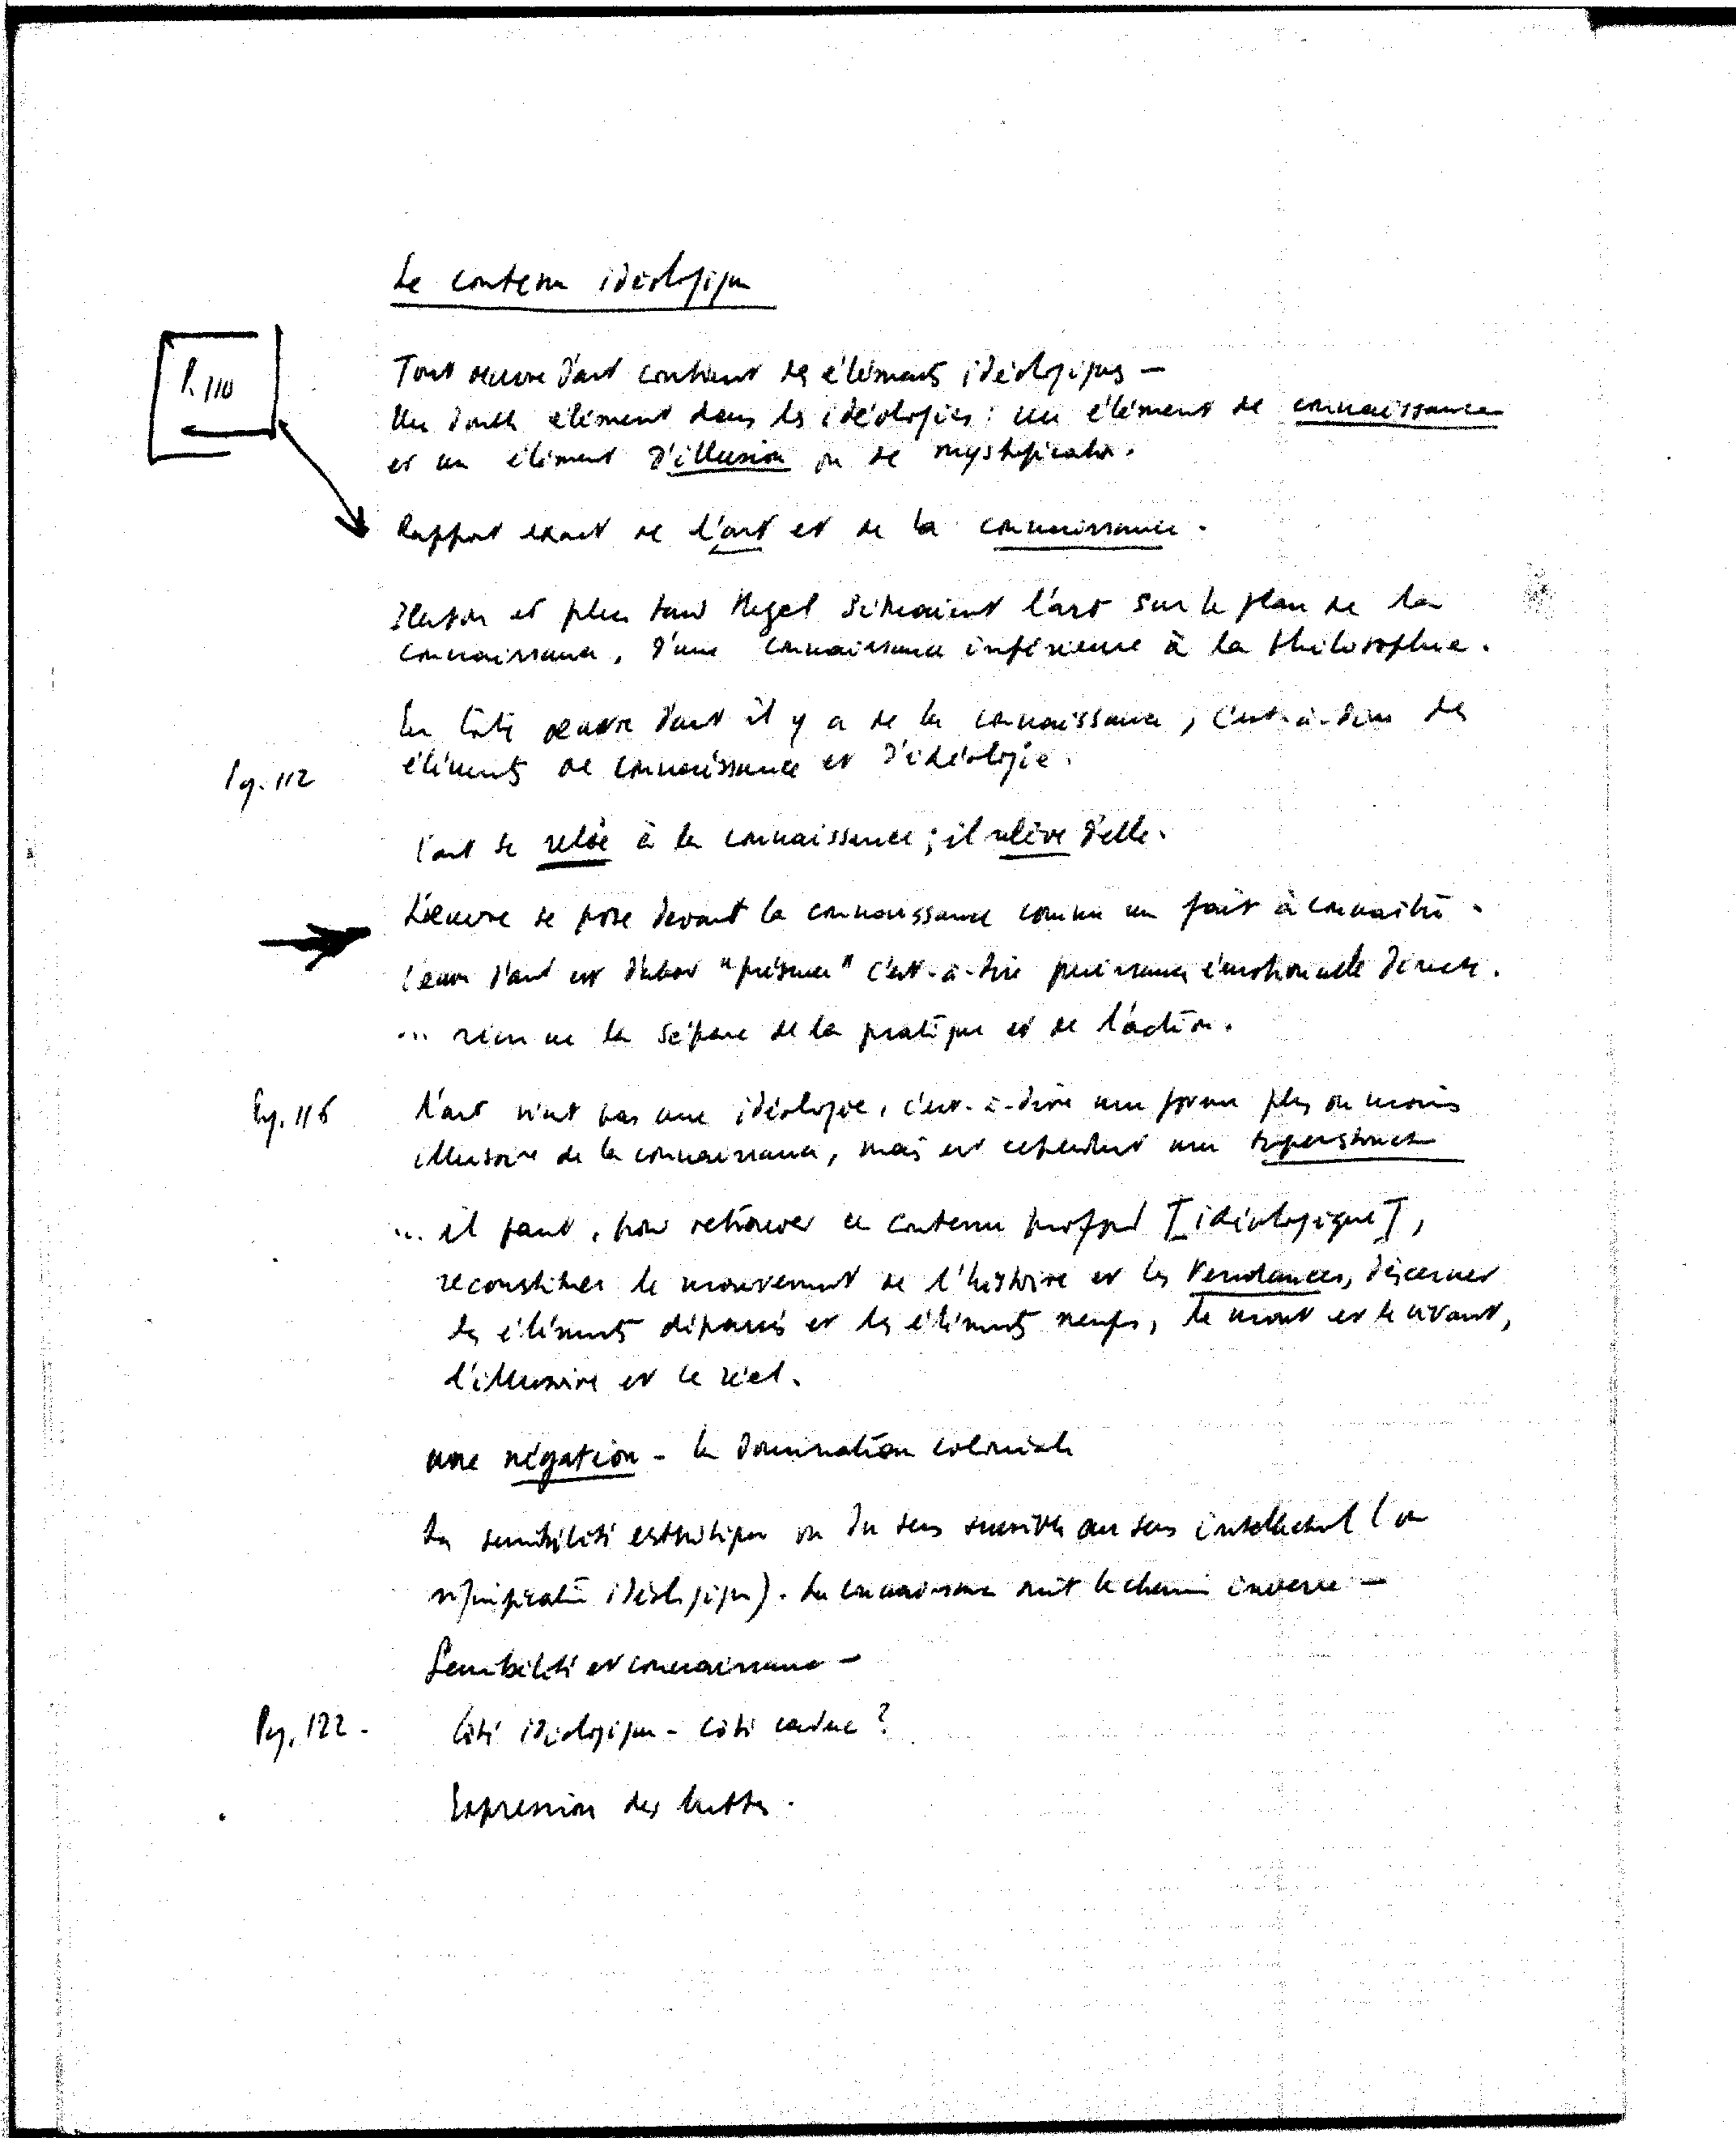 Le contenu idéologique
P. 110
Tout oeuvre d'art contient des éléments idéologiques —
Un double élément dans les idéologies : un élément de connaissance
et un élément d'illusion ou de mystification.
Rapport exact de l'art et de la connaissance.
Platon et plus tard Hegel situaient l'art sur le plan de la
connaissance, d'une connaissance inférieure à la philosophie.
En toute oeuvre d'art il y a de la connaissance, c'est-à-dire des
éléments de connaissance et d'idéologie.
Pg. 112
L'art se relie à la connaissance ; il relève d'elle.
L'oeuvre se pose devant la connaissance comme un fait à connaître.
L'oeuvre d'art est d'abord "présence" c'est-à-dire puissance émotionnelle directe.
... rien ne la sépare de la pratique et de l'action.
Pg. 116
L'art n'est pas une idéologie, c'est-à-dire une forme plus ou moins
illusoire de la connaissance, mais est cependant une superstructure
... il faut, pour retrouver ce contenu profond [idéologique],
reconstituer le mouvement de l'histoire et les tendances, discerner
les éléments dépassés et les éléments neufs, le mort et le vivant,
l'illusoire et le réel.
une négation - la domination coloniale
La sensibilité esthétique va du sens sensible au sens intellectuel (ou
signification idéologique). La connaissance suit le chemin inverse —
Sensibilité et connaissance —
Pg. 122 -
Côté idéologique - côté caduc ?
Expression des luttes.